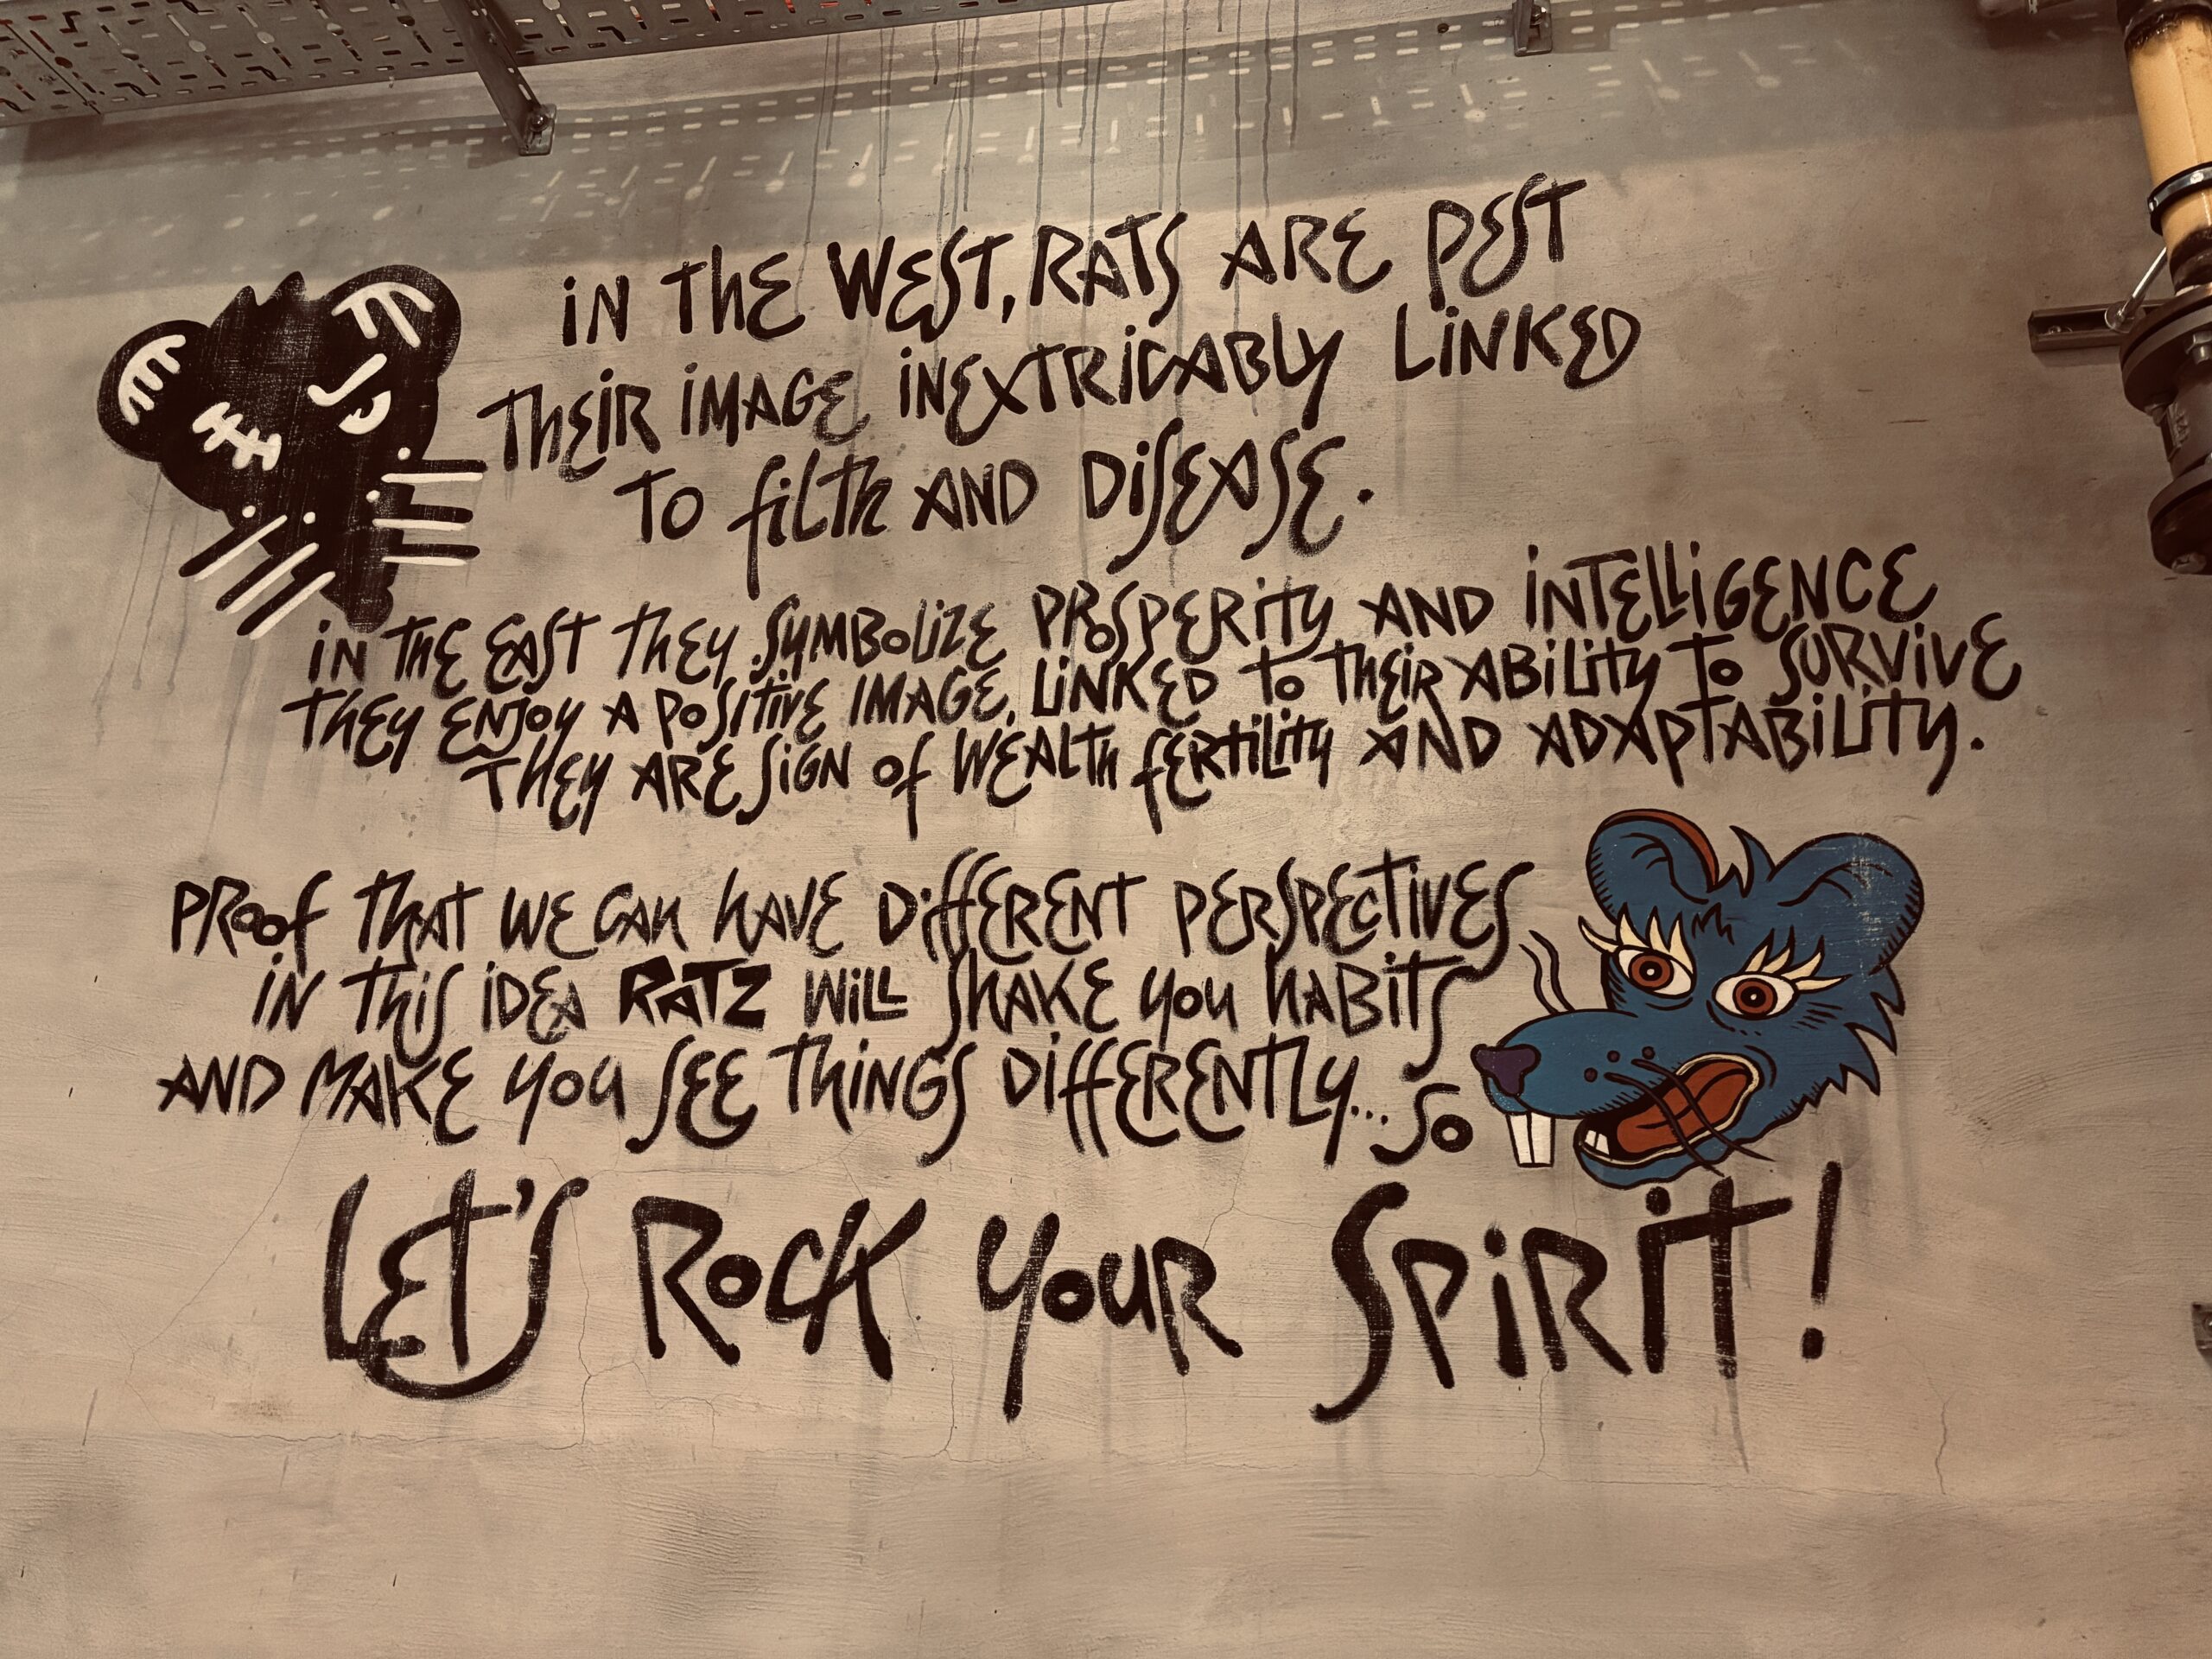 IN THE WEST, RATS ARE PEST
THEIR IMAGE INEXTRICABLY LINKED
TO FILTH AND DISEASE.
IN THE EAST THEY SYMBOLIZE PROSPERITY AND INTELLIGENCE
THEY ENJOY A POSITIVE IMAGE, LINKED TO THEIR ABILITY TO SURVIVE
THEY ARE SIGN OF WEALTH FERTILITY AND ADAPTABILITY.
PROOF THAT WE CAN HAVE DIFFERENT PERSPECTIVES
IN THIS IDEA RATZ WILL SHAKE YOU HABITS
AND MAKE YOU SEE THINGS DIFFERENTLY... SO
LET'S ROCK YOUR SPIRIT!